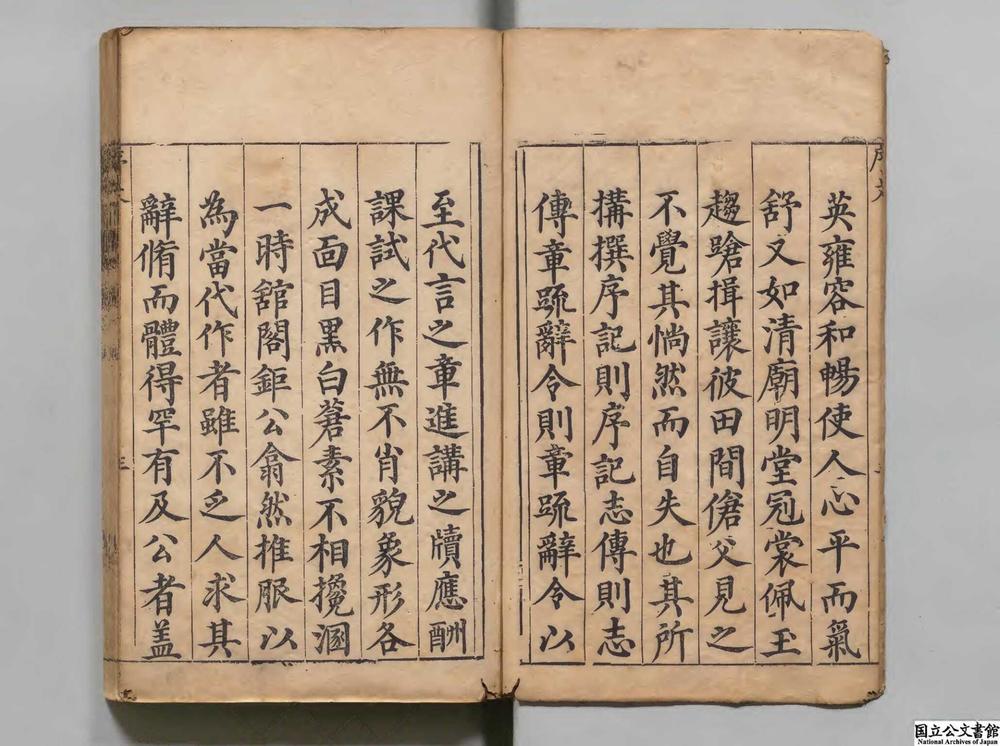 英雍容和暢使人心平而氣
舒又如清廟明堂冠裳佩玉
趨蹌揖讓彼田間傖父見之
不覺其惝然而自失也其所
搆撰序記則序記志傳則志
傳章䟽辭令則章䟽辭令以
至代言之章進講之牘應酬
課試之作無不肖貌象形各
成面目黑白蒼素不相攙溷
一時舘閣鉅公翕然推服以
為當代作者雖不乏人求其
辭脩而體得罕有及公者盖
三
国立公文書館
National Archives of Japan